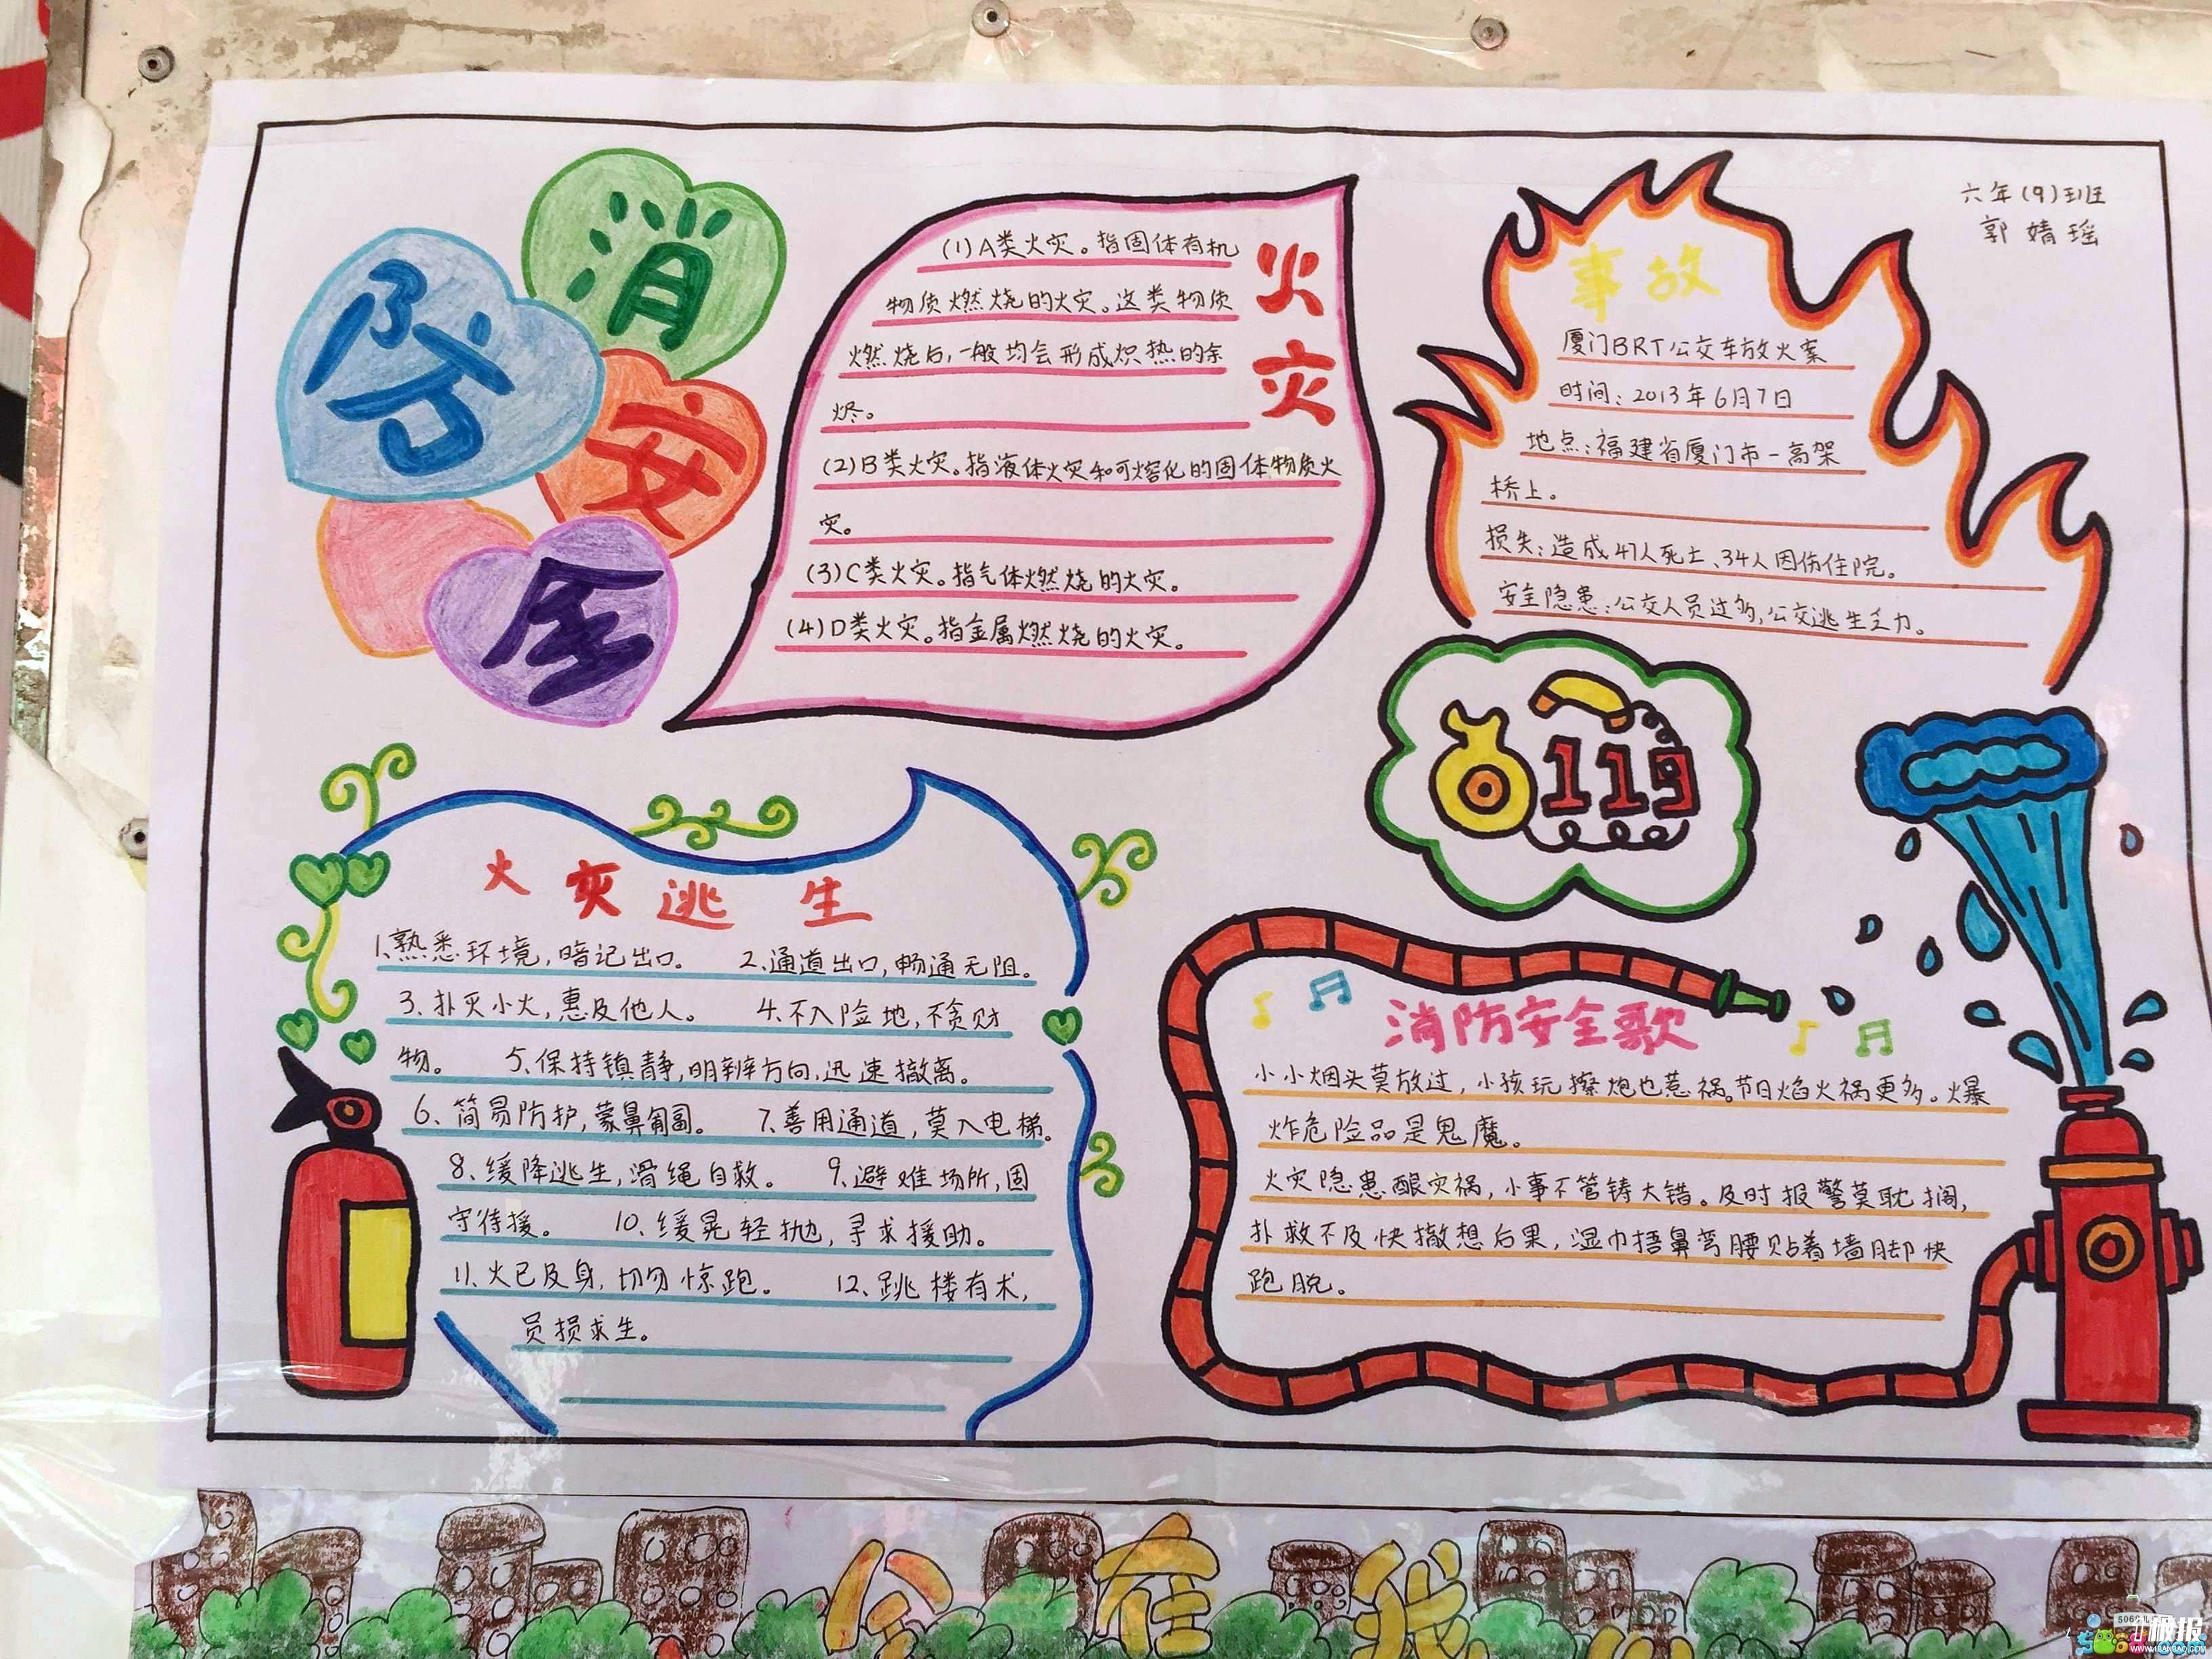 消
防
安
全
火灾
(1)A类火灾。指固体有机
物质燃烧的火灾。这类物质
燃烧后,一般均会形成炽热的余
烬。
(2)B类火灾。指液体火灾和可熔化的固体物质火
灾。
(3)C类火灾。指气体燃烧的火灾。
(4)D类火灾。指金属燃烧的火灾。
六年(9)班
郭婧瑶
事故
厦门BRT公交车放火案
时间:2013年6月7日
地点:福建省厦门市一高架
桥上。
损失:造成47人死亡、34人因伤住院。
安全隐患:公交人员过多,公交逃生乏力。
119
火灾逃生
1、熟悉环境,暗记出口。 2、通道出口,畅通无阻。
3、扑灭小火,惠及他人。 4、不入险地,不贪财
物。 5、保持镇静,明辨方向,迅速撤离。
6、简易防护,蒙鼻匍匐。 7、善用通道,莫入电梯。
8、缓降逃生,滑绳自救。 9、避难场所,固
守待援。 10、缓晃轻抛,寻求援助。
11、火已及身,切勿惊跑。 12、跳楼有术,
员损求生。
消防安全歌
小小烟头莫放过,小孩玩擦炮也惹祸。节日焰火祸更多。火爆
炸危险品是鬼魔。
火灾隐患酿灾祸,小事不管铸大错。及时报警莫耽搁,
扑救不及快撤想后果,湿巾捂鼻弯腰贴着墙脚快
跑脱。
在我